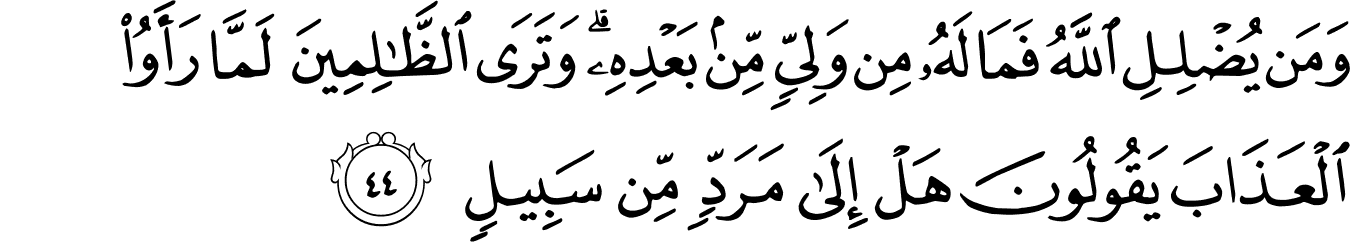 وَمَن يُضْلِلِ ٱللَّهُ فَمَا لَهُۥ مِن وَلِىٍّ مِّنۢ بَعْدِهِۦ ۗ وَتَرَى ٱلظَّـٰلِمِينَ لَمَّا رَأَوُا۟
ٱلْعَذَابَ يَقُولُونَ هَلْ إِلَىٰ مَرَدٍّ مِّن سَبِيلٍ ٤٤